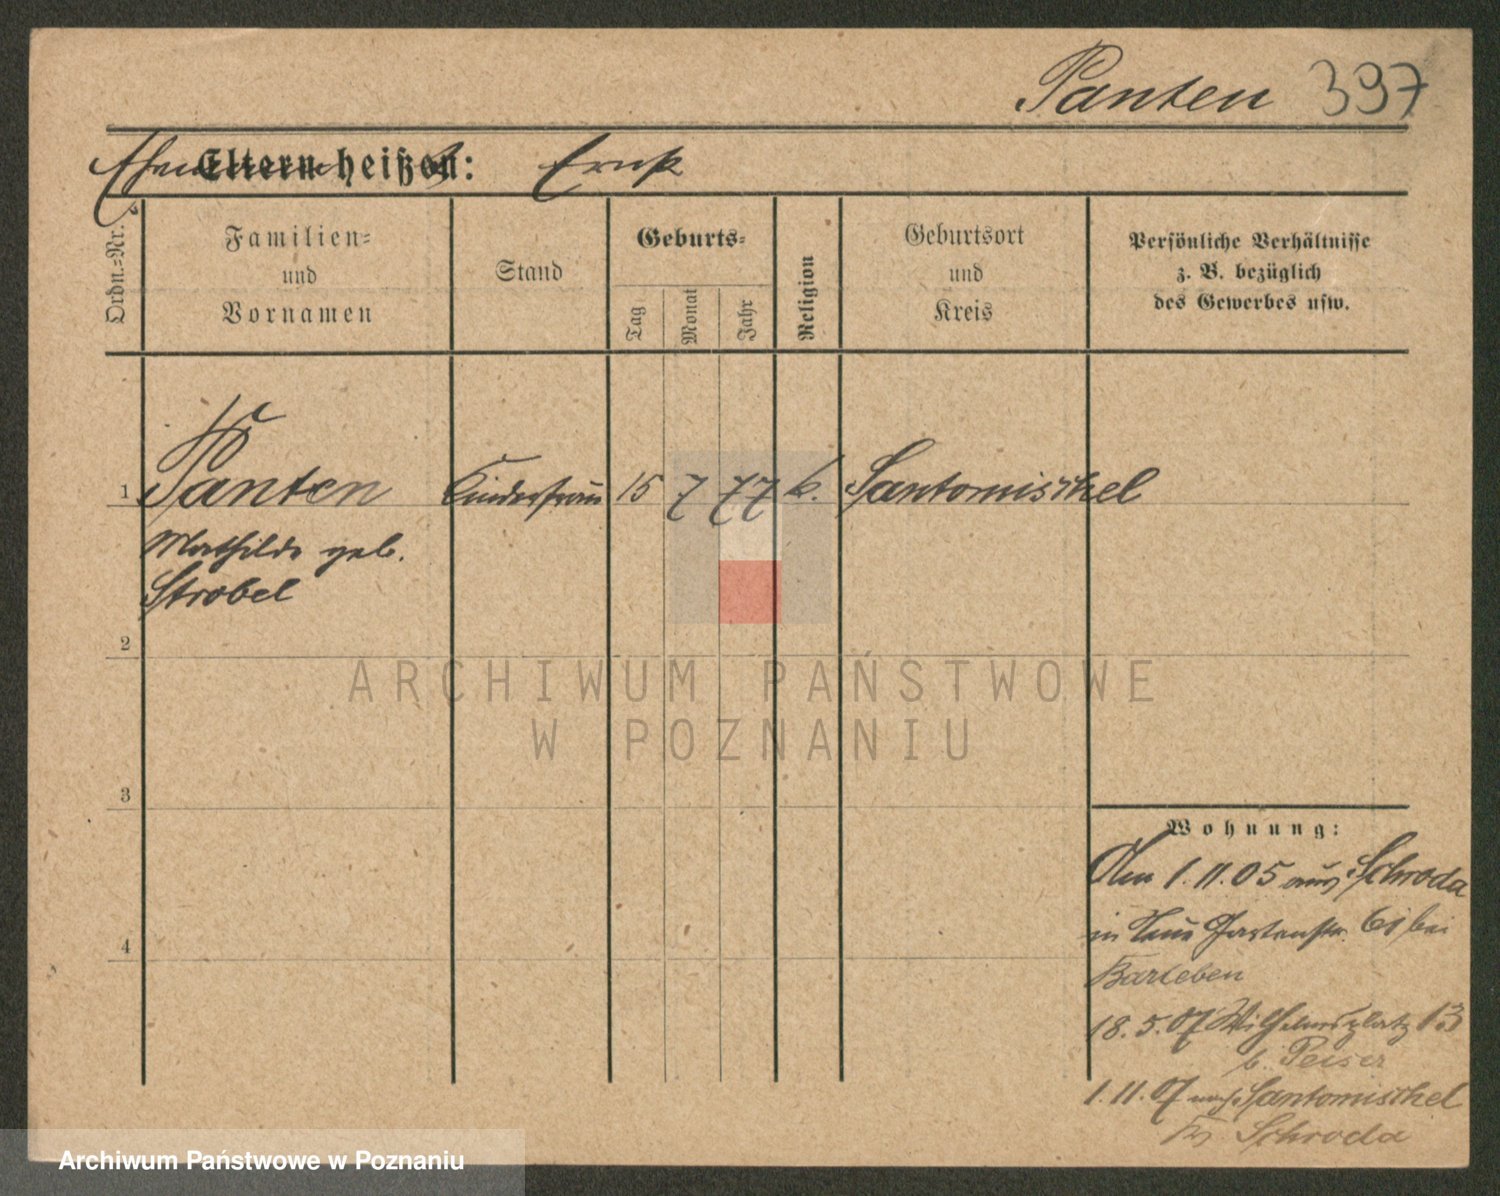 Panten 397
Eltern heißen: Ernst
Ordn.-Nr.
Familien-
und
Vornamen
Stand
Geburts-
Tag
Monat
Jahr
Religion
Geburtsort
und
Kreis
Persönliche Verhältnisse
z. B. bezüglich
des Gewerbes usw.
1 Panten Kinderfrau 15 7 77 k. Santomischel
Mathilde geb.
Strobel
2
3
4
Wohnung:
Am 1.11.05 aus Schroda
in Neue Gartenstr. 61 bei
Barleben
18.5.07 Wilhelmsplatz 13
b. Peiser
1.11.07 nach Santomischel
Schroda
ARCHIWUM PAŃSTWOWE
W POZNANIU
Archiwum Państwowe w Poznaniu